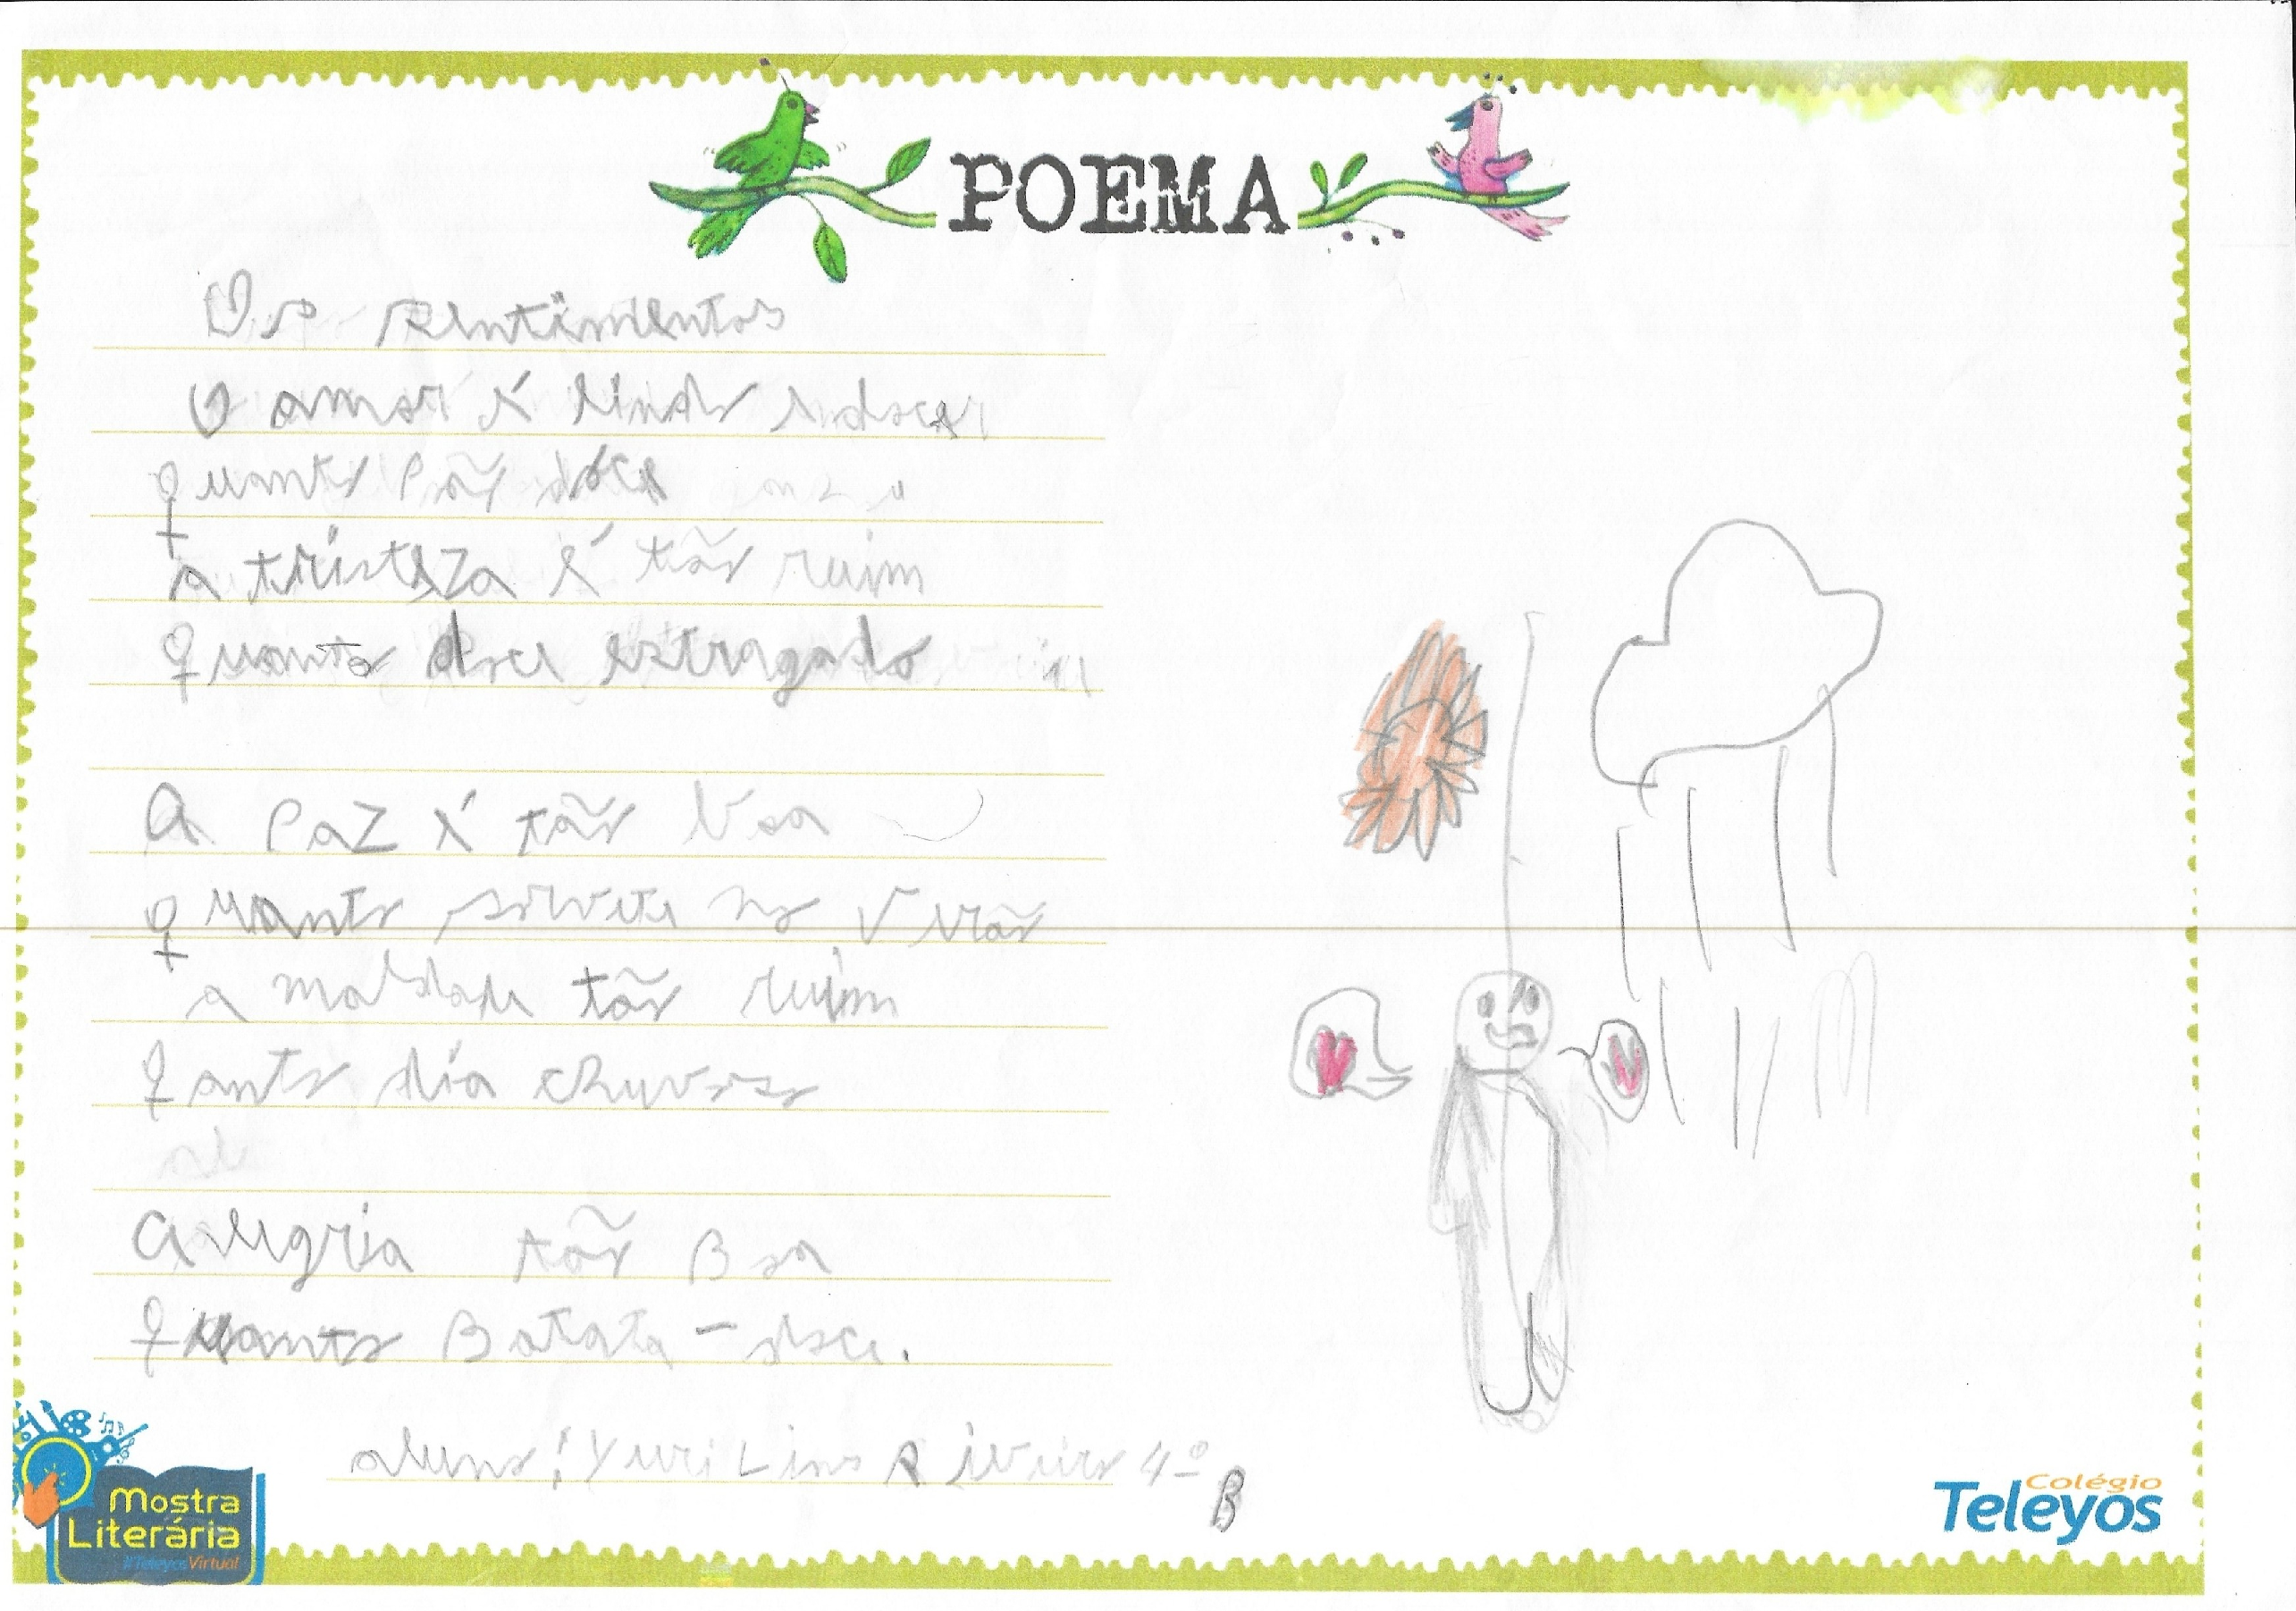 POEMA
Os sentimentos
O amor é lindo e doce
quanto pão doce
a tristeza é tão ruim
quanto doce estragado
A paz é tão boa
quanto sorvete no verão
a maldade tão ruim
qanto dia chuvoso
Alegria tão Boa
quanto Batata-doce.
aluno: Yuri Lino Riveiro 4º
B
Mostra
Literária
#Teleyos Virtual
Colégio
Teleyos